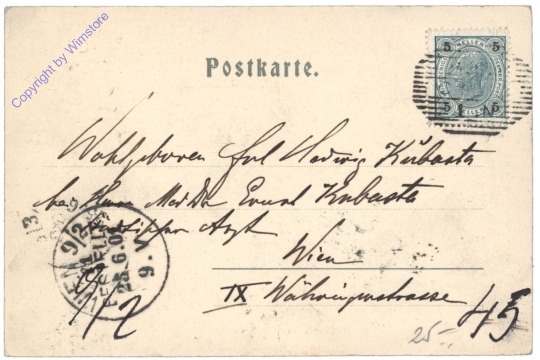 Copyright by Wimstore
Postkarte.
5 5
HELLER
5 5
Wohlgeboren Frl Hedwig Kubasta
bei Herrn Med Dr Ernst Kubasta
Arzt
Wien
IX Währingerstrasse 45
WIEN 9/2
BESTELLT
25.6.0
9.V.
25-